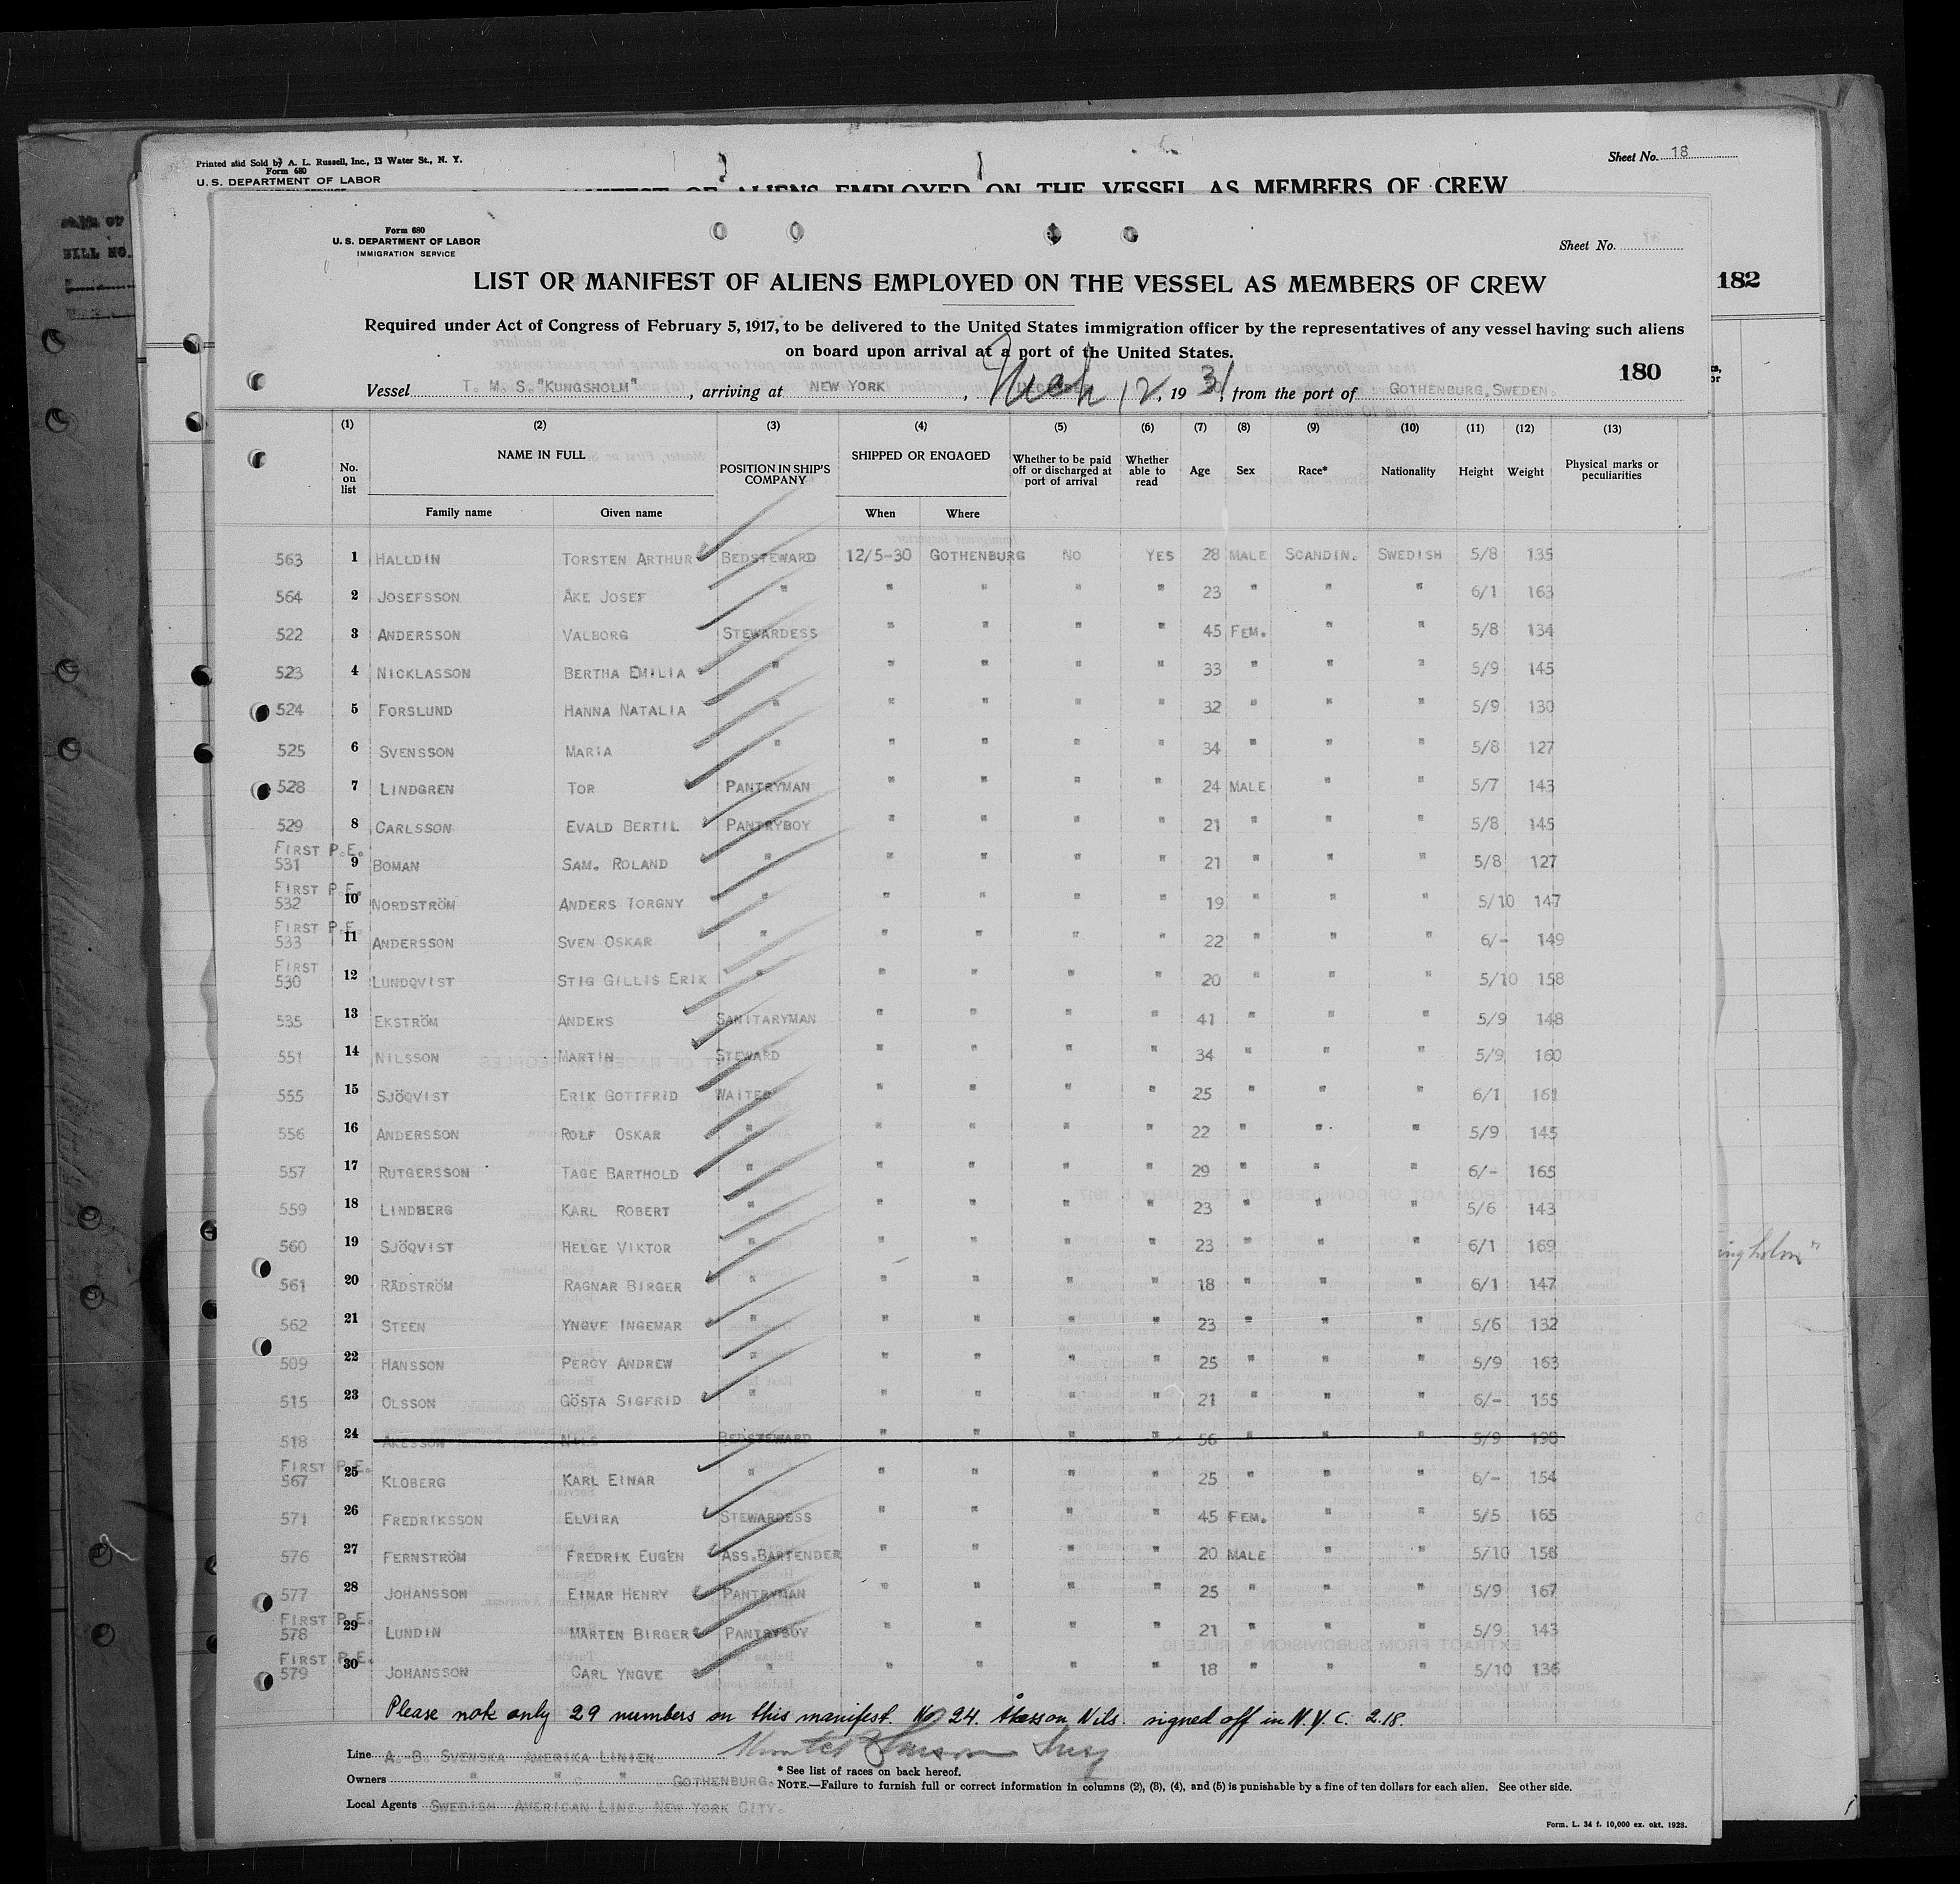 Printed and Sold by A. L. Russell, Inc., 13 Water St., N. Y.
Form 680
U. S. DEPARTMENT OF LABOR
Sheet No. 18
MANIFEST OF ALIENS EMPLOYED ON THE VESSEL AS MEMBERS OF CREW
BILL NO.
182
Form 680
U. S. DEPARTMENT OF LABOR
IMMIGRATION SERVICE
Sheet No.
LIST OR MANIFEST OF ALIENS EMPLOYED ON THE VESSEL AS MEMBERS OF CREW
Required under Act of Congress of February 5, 1917, to be delivered to the United States immigration officer by the representatives of any vessel having such aliens
on board upon arrival at a port of the United States.
180
Vessel T. M. S. "KUNGSHOLM", arriving at NEW YORK, Mch 12, 1931, from the port of GOTHENBURG, SWEDEN.
(1) (2) (3) (4) (5) (6) (7) (8) (9) (10) (11) (12) (13)
No. on list NAME IN FULL Family name Given name POSITION IN SHIP'S COMPANY SHIPPED OR ENGAGED When Where Whether to be paid off or discharged at port of arrival Whether able to read Age Sex Race* Nationality Height Weight Physical marks or peculiarities
563 1 HALLDIN TORSTEN ARTHUR BEDSTEWARD 12/5-30 GOTHENBURG NO YES 28 MALE SCANDIN. SWEDISH 5/8 135
564 2 JOSEFSSON ÅKE JOSEF " " " " " 23 " " " 6/1 163
522 3 ANDERSSON VALBORG STEWARDESS " " " " 45 FEM. " " 5/8 134
523 4 NICKLASSON BERTHA EMILIA " " " " " 33 " " " 5/9 145
524 5 FORSLUND HANNA NATALIA " " " " " 32 " " " 5/9 130
525 6 SVENSSON MARIA " " " " " 34 " " " 5/8 127
528 7 LINDGREN TOR PANTRYMAN " " " " 24 MALE " " 5/7 143
529 8 CARLSSON EVALD BERTIL PANTRYBOY " " " " 21 " " " 5/8 145
FIRST P.E.
531 9 BOMAN SAM. ROLAND " " " " " 21 " " " 5/8 127
FIRST P.E.
532 10 NORDSTRÖM ANDERS TORGNY " " " " " 19 " " " 5/10 147
FIRST P.E.
533 11 ANDERSSON SVEN OSKAR " " " " " 22 " " " 6/- 149
FIRST
530 12 LUNDQVIST STIG GILLIS ERIK " " " " " 20 " " " 5/10 158
535 13 EKSTRÖM ANDERS SANITARYMAN " " " " 41 " " " 5/9 148
551 14 NILSSON MARTIN STEWARD " " " " 34 " " " 5/9 160
555 15 SJÖQVIST ERIK GOTTFRID WAITER " " " " 25 " " " 6/1 161
556 16 ANDERSSON ROLF OSKAR " " " " " 22 " " " 5/9 145
557 17 RUTGERSSON TAGE BARTHOLD " " " " " 29 " " " 6/- 165
559 18 LINDBERG KARL ROBERT " " " " " 23 " " " 5/6 143
560 19 SJÖQVIST HELGE VIKTOR " " " " " 23 " " " 6/1 169
561 20 RÅDSTRÖM RAGNAR BIRGER " " " " " 18 " " " 6/1 147
562 21 STEEN YNGVE INGEMAR " " " " " 23 " " " 5/6 132
509 22 HANSSON PERCY ANDREW " " " " " 25 " " " 5/9 163
515 23 OLSSON GÖSTA SIGFRID " " " " " 21 " " " 6/- 155
518 24 ÅKESSON NILS BEDSTEWARD " " " " 56 " " " 5/9 190
FIRST P.E.
567 25 KLOBERG KARL EINAR " " " " " 25 " " " 6/- 154
571 26 FREDRIKSSON ELVIRA STEWARDESS " " " " 45 FEM. " " 5/5 165
576 27 FERNSTRÖM FREDRIK EUGEN ASS.BARTENDER " " " " 20 MALE " " 5/10 156
577 28 JOHANSSON EINAR HENRY PANTRYMAN " " " " 25 " " " 5/9 167
FIRST P.E.
578 29 LUNDIN MÅRTEN BIRGER PANTRYBOY " " " " 21 " " " 5/9 143
FIRST P.E.
579 30 JOHANSSON CARL YNGVE " " " " " 18 " " " 5/10 136
Please note only 29 numbers on this manifest. No 24. Åkesson Nils. signed off in N.Y.C. 2.18.
Line A. B. SVENSKA AMERIKA LINIEN
* See list of races on back hereof.
Owners " " " GOTHENBURG.
NOTE.—Failure to furnish full or correct information in columns (2), (3), (4), and (5) is punishable by a fine of ten dollars for each alien. See other side.
Local Agents SWEDISH AMERICAN LINE. NEW YORK CITY.
Form. L. 34 f. 10,000 ex. okt. 1928.